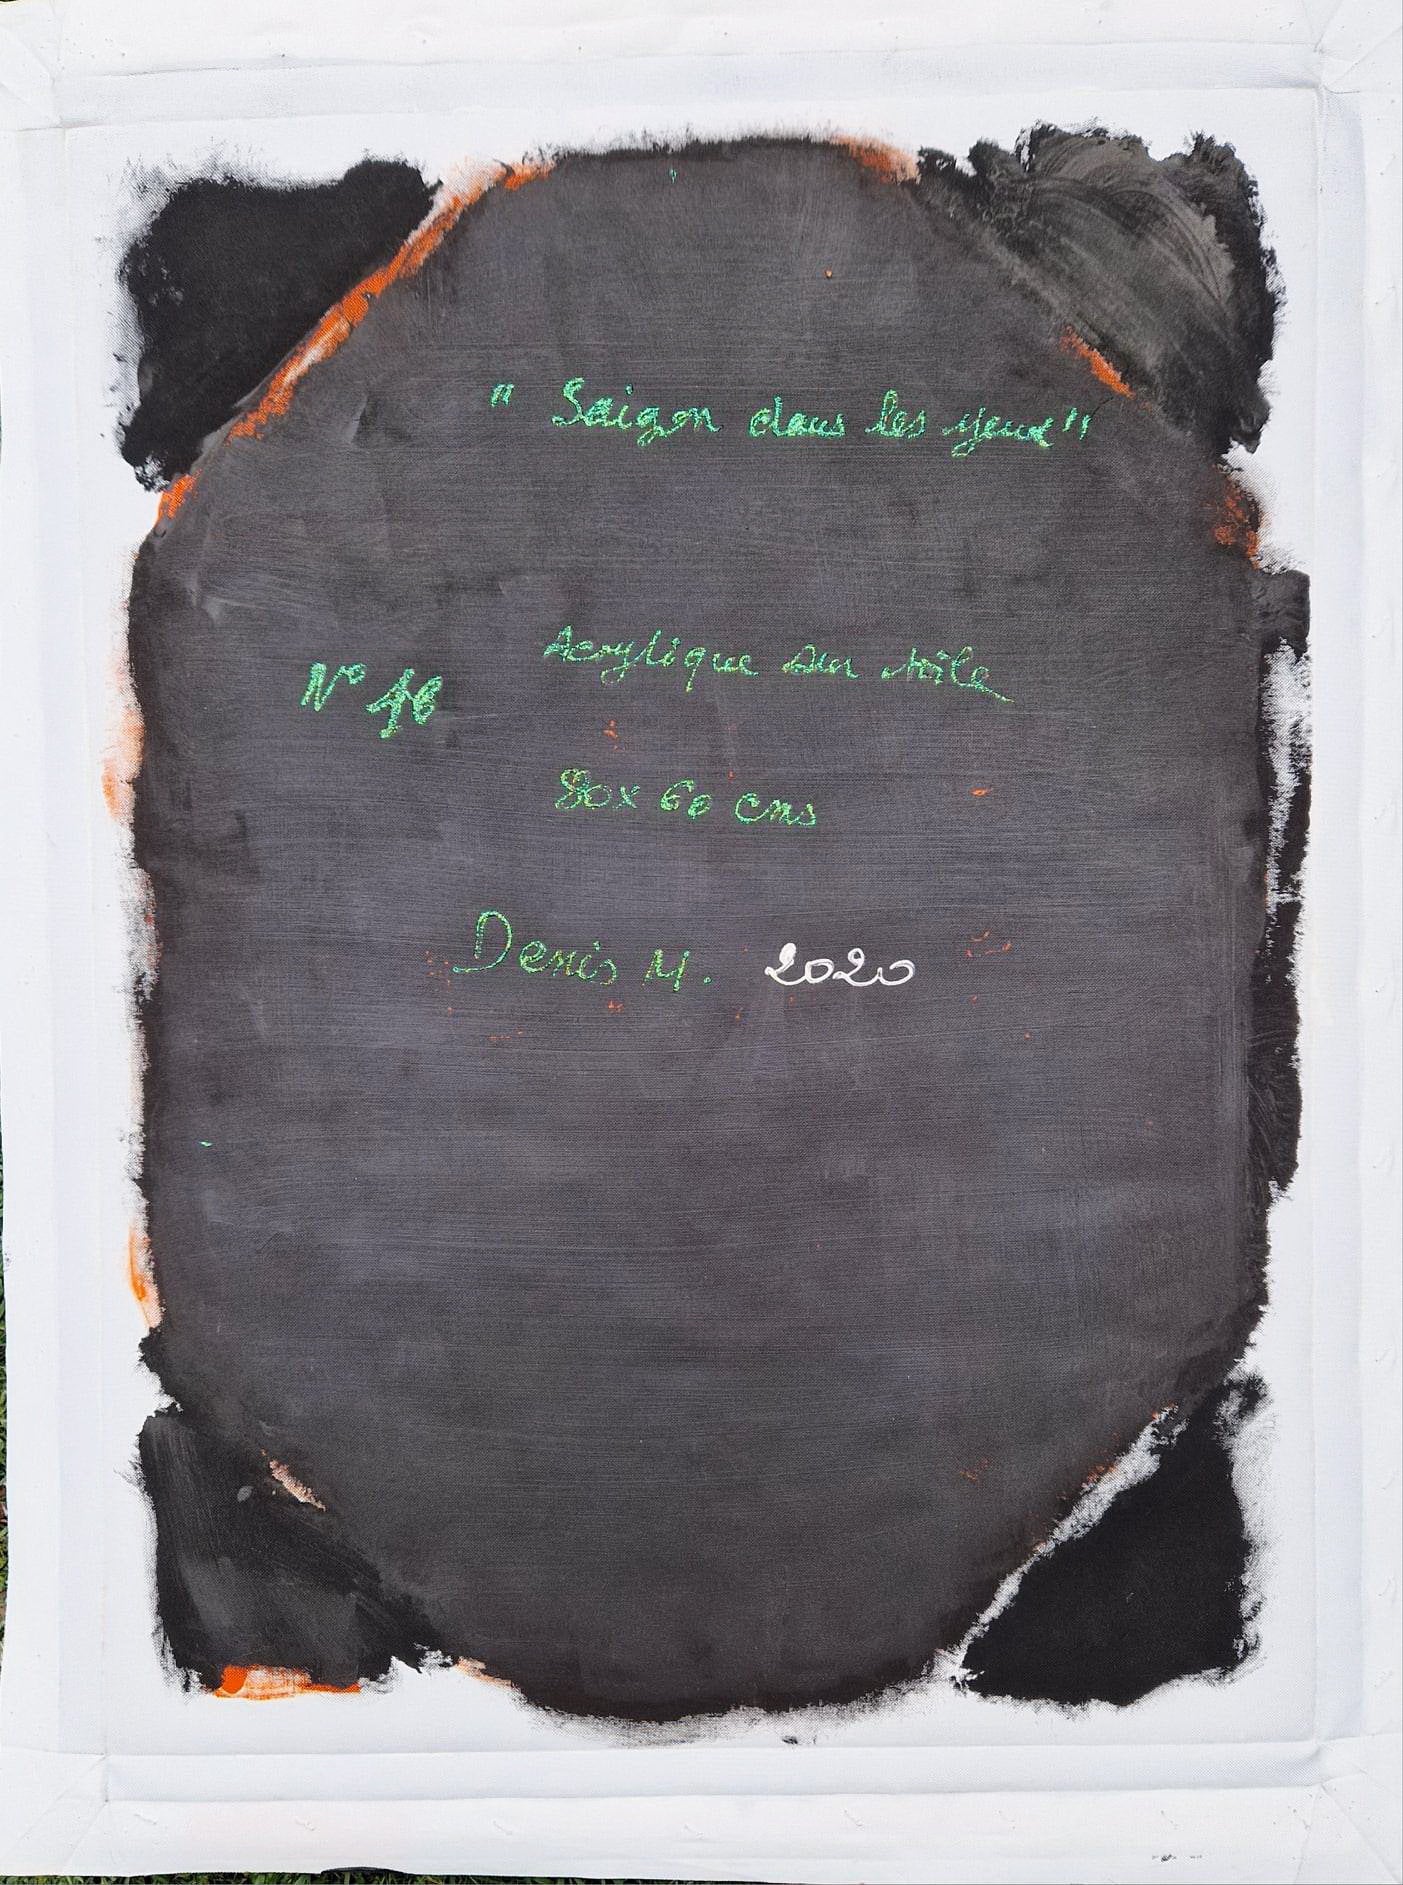 " Saigon dans les yeux"
Acrylique sur toile
N° 46
80x 60 cms
Denis M. 2020